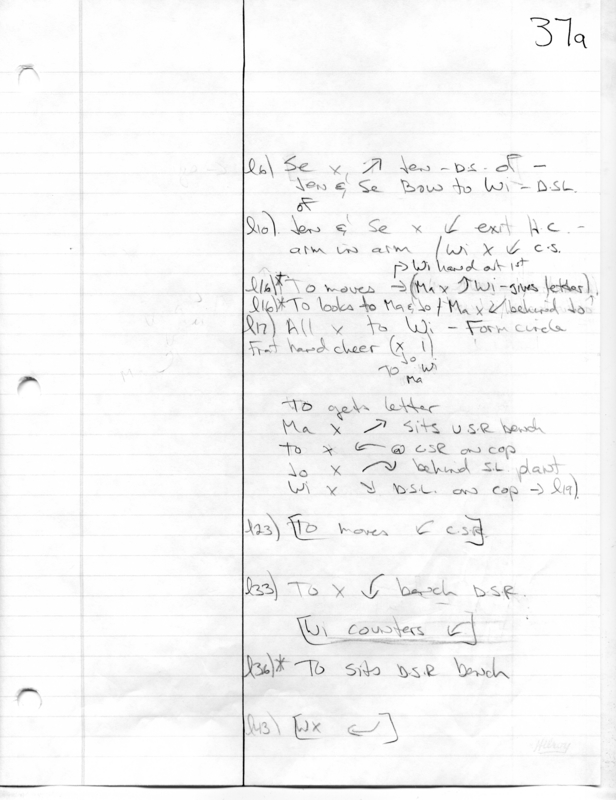 37a
l6) Se x ↗ Jen - D.S. of -
Jen & Se Bow to Wi - D.S.L.
of
l10). Jen & Se x ↙ exit H.C. -
arm in arm / Wi x ↙ C.S.
↱ Wi hand out 1st
l16)* To moves → (Ma x ↑ Wi - gives letter)
l16)* To looks to Ma & Jo / Ma x ↙ behind Jo
l17) All x to Wi - Form circle
First hand cheer (x 1)
Jo
To Wi
Ma
To gets letter
Ma x ↗ sits U.S.R bench
To x ← @ CSR on cop
Jo x ↷ behind S.L. plant
Wi x ↘ D.S.L. on cop → l19)
l23) [To moves ↙ C.S.R]
l33) To x ↙ bench D.S.R.
[Wi counters ↙]
l36)* To sits D.S.R bench
l43) [Wx ↩]
Hilroy